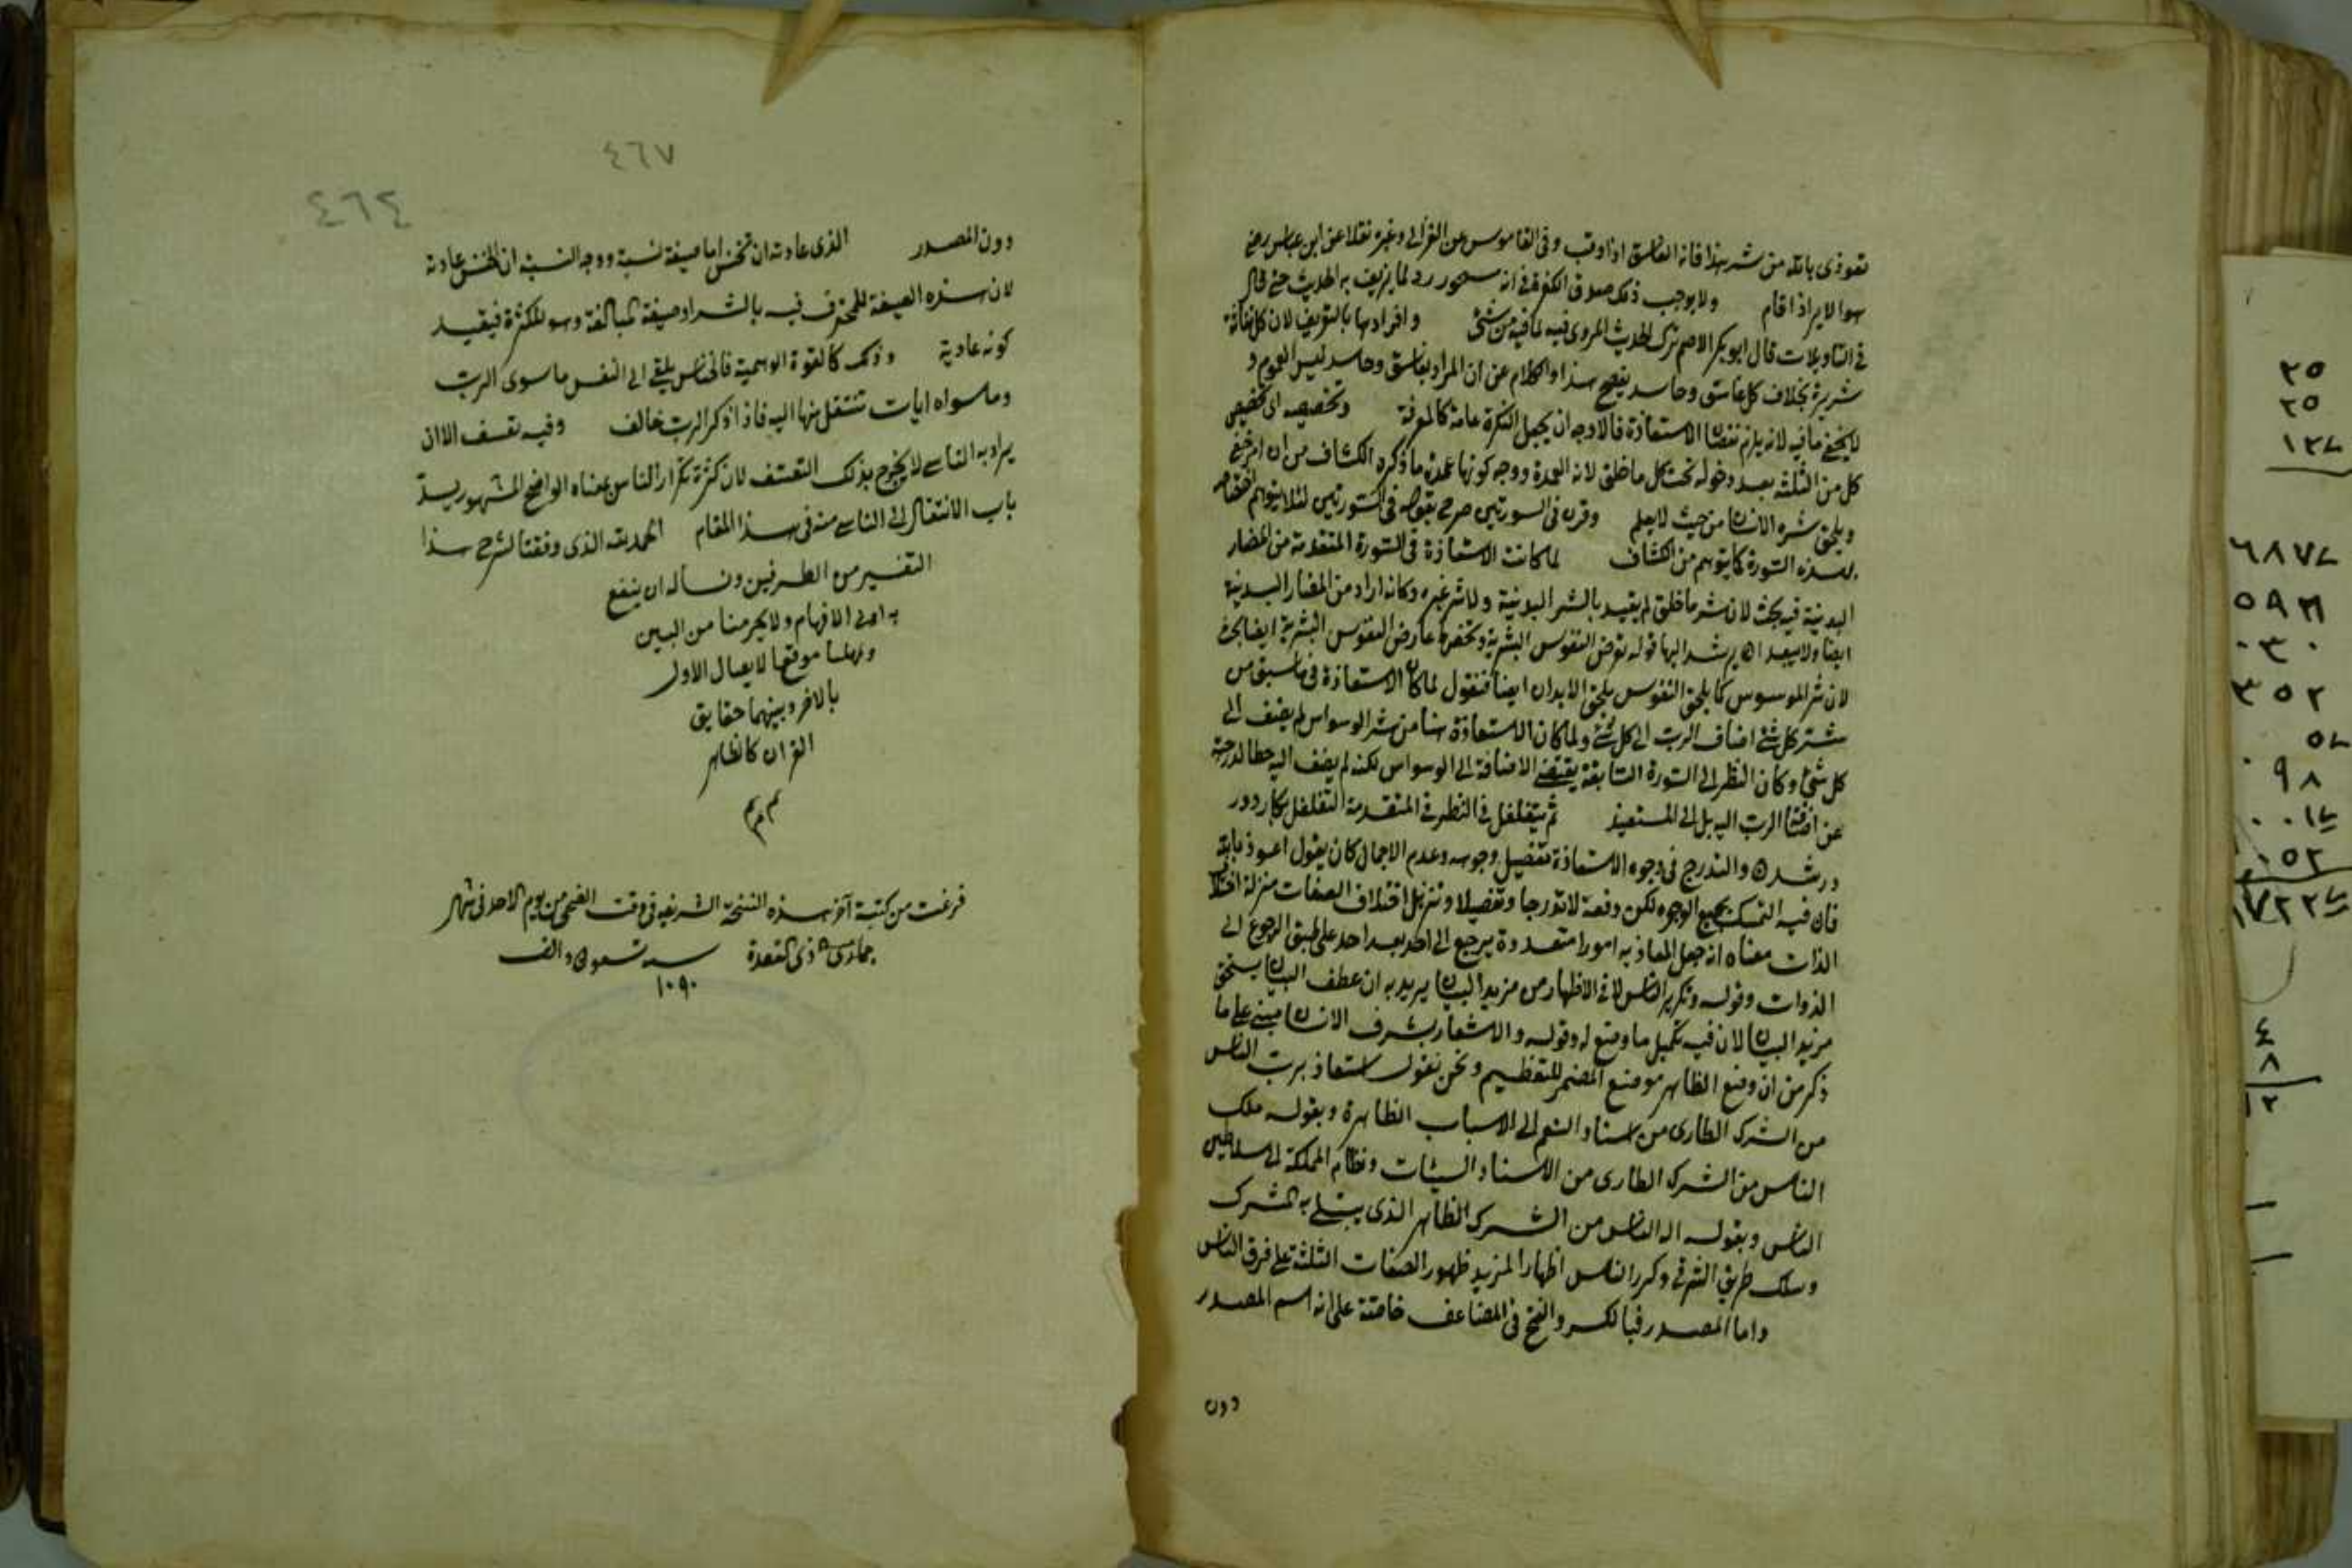 تعوذى بالله من شر هذا فانه الغاسق اذا وقب وفى القاموس عن الغزالى وغيره نقلا عن ابن عباس رضى
هو الاير اذا قام ولا يوجب ذلك صدق الكفرة فى انه مسحور رد لما يزيف به الحديث حتى قال
فى التاويلات قال ابو بكر الاصم نترك الحديث المروى فيه لما فيه من شئ وافرادها بالتعريف لان كل نفاثة
شريرة بخلاف كل غاسق وحاسد يفصح هذا الكلام عن ان المراد بغاسق وحاسد ليس العموم و
لا يخفى ما فيه لانه يلزم نقصان الاستعاذة فالاوجه ان يجعل النكرة عامة كالمعرفة وتخصيصه اى تخصيص
كل من الثلثة بعد دخوله تحت كل ما خلق لانه العمدة ووجه كونها عمدة ما ذكره الكشاف من ان امر خفى
ويلحق شره الانسان من حيث لا يعلم وقرئ فى السورتين صرح بقوله فى السورتين لئلا يتوهم اختصاصه
بهذه السورة كما يتوهم من الكشاف لما كانت الاستعاذة فى السورة المتقدمة من المضار
البدنية فيه بحث لان شر ما خلق لم يقيد بالشر البدنية ولا شر غيره وكانه اراد من المضار البدنية
ايضا ولا يبعد ان يرشد اليها قوله تعرض النفوس البشرية وتخصها عارض النفوس البشرية ايضا بحث
لان شر الموسوس كما يلحق النفوس يلحق الابدان ايضا فنقول لما كان الاستعاذة فى ما سبق من
شر كل شئ اضاف الرب الى كل شئ ولما كان الاستعاذة هنا من شر الوسواس لم يضف الى
كل شئ وكان النظر الى السورة السابقة يقتضى الاضافة الى الوسواس لكنه لم يضف اليه حطا لدرجته
عن اضافة الرب اليه بل الى المستعيذ ثم يتغلغل فى النظر فى المتقدمة التغلغل بكار دور
در شدن والتدرج فى وجوه الاستعاذة تفصيل وجوهه وعدم الاجمال كان يقول اعوذ بالله
فان فيه التمسك بجميع الوجوه لكن دفعة لا تدرجا وتفصيلا وتنزيل اختلاف الصفات منزلة اختلاف
الذات معناه انه جعل المعاذ به امورا متعددة يرجع الى احد بعد احد على طبق الرجوع الى
الذوات وقوله وتكرير الناس لما فى الاظهار من مزيد البيان يريد به ان عطف البيان يستحق
مزيد البيان لان فيه تكميل ما وضع له وقوله والاشعار بشرف الانسان مبنى على ما
ذكر من ان وضع الظاهر موضع المضمر للتعظيم ونحن نقول استعاذ برب الناس
من الشرك الطارى من اسناد النعم الى الاسباب الظاهرة وبقوله ملك
الناس من الشرك الطارى من الاسناد السيئات ونظام المملكة الى سلاطين
الناس وبقوله اله الناس من الشرك الظاهر الذى يبتلى به المشرك
وسلك طريق الترقى وكرر الناس اظهارا لمزيد ظهور الصفات الثلثة على فرق الناس
واما المصدر فبالكسر والفتح فى المضاعف خاصة على انه اسم المصدر
دون
٤٦٧
٤٦٤
دون المصدر الذى عادته ان تخنس اما صيغة نسبة ووجه النسبة ان الخنس عادته
لان هذه الصيغة للمحترف فيه بالشر او صيغة المبالغة وهو للكثرة فيفيد
كونه عادية وذلك كالقوة الوهمية فالخناس يلقى الى النفس ما سوى الرب
وما سواه ايات تنتقل منها اليه فاذا ذكر الرب خالف وفيه تعسف الا ان
يراد به الناسى لا يخرج بذلك التعسف لان كثرة تكرار الناس بمعناه الواضح المشهور يسد
باب الانتقال الى الناسى منه فى هذا المقام الحمد لله الذى وفقنا لشرح هذا
التفسير من الطرفين ونساله ان ينفع
به اولى الافهام ولا يحرمنا من البين
موقعها لايصال الاول
بالاخر وبينهما حقايق
القران كالظاهر
تم تم
فرغت من كتبة آخر هذه النسخة الشريفة فى وقت الضحى من يوم الاحد فى شهر
ذى القعدة سنه تسعون والف
١٠٩٠
٢٥
٢٥
٩٨
٤
٨
١٢